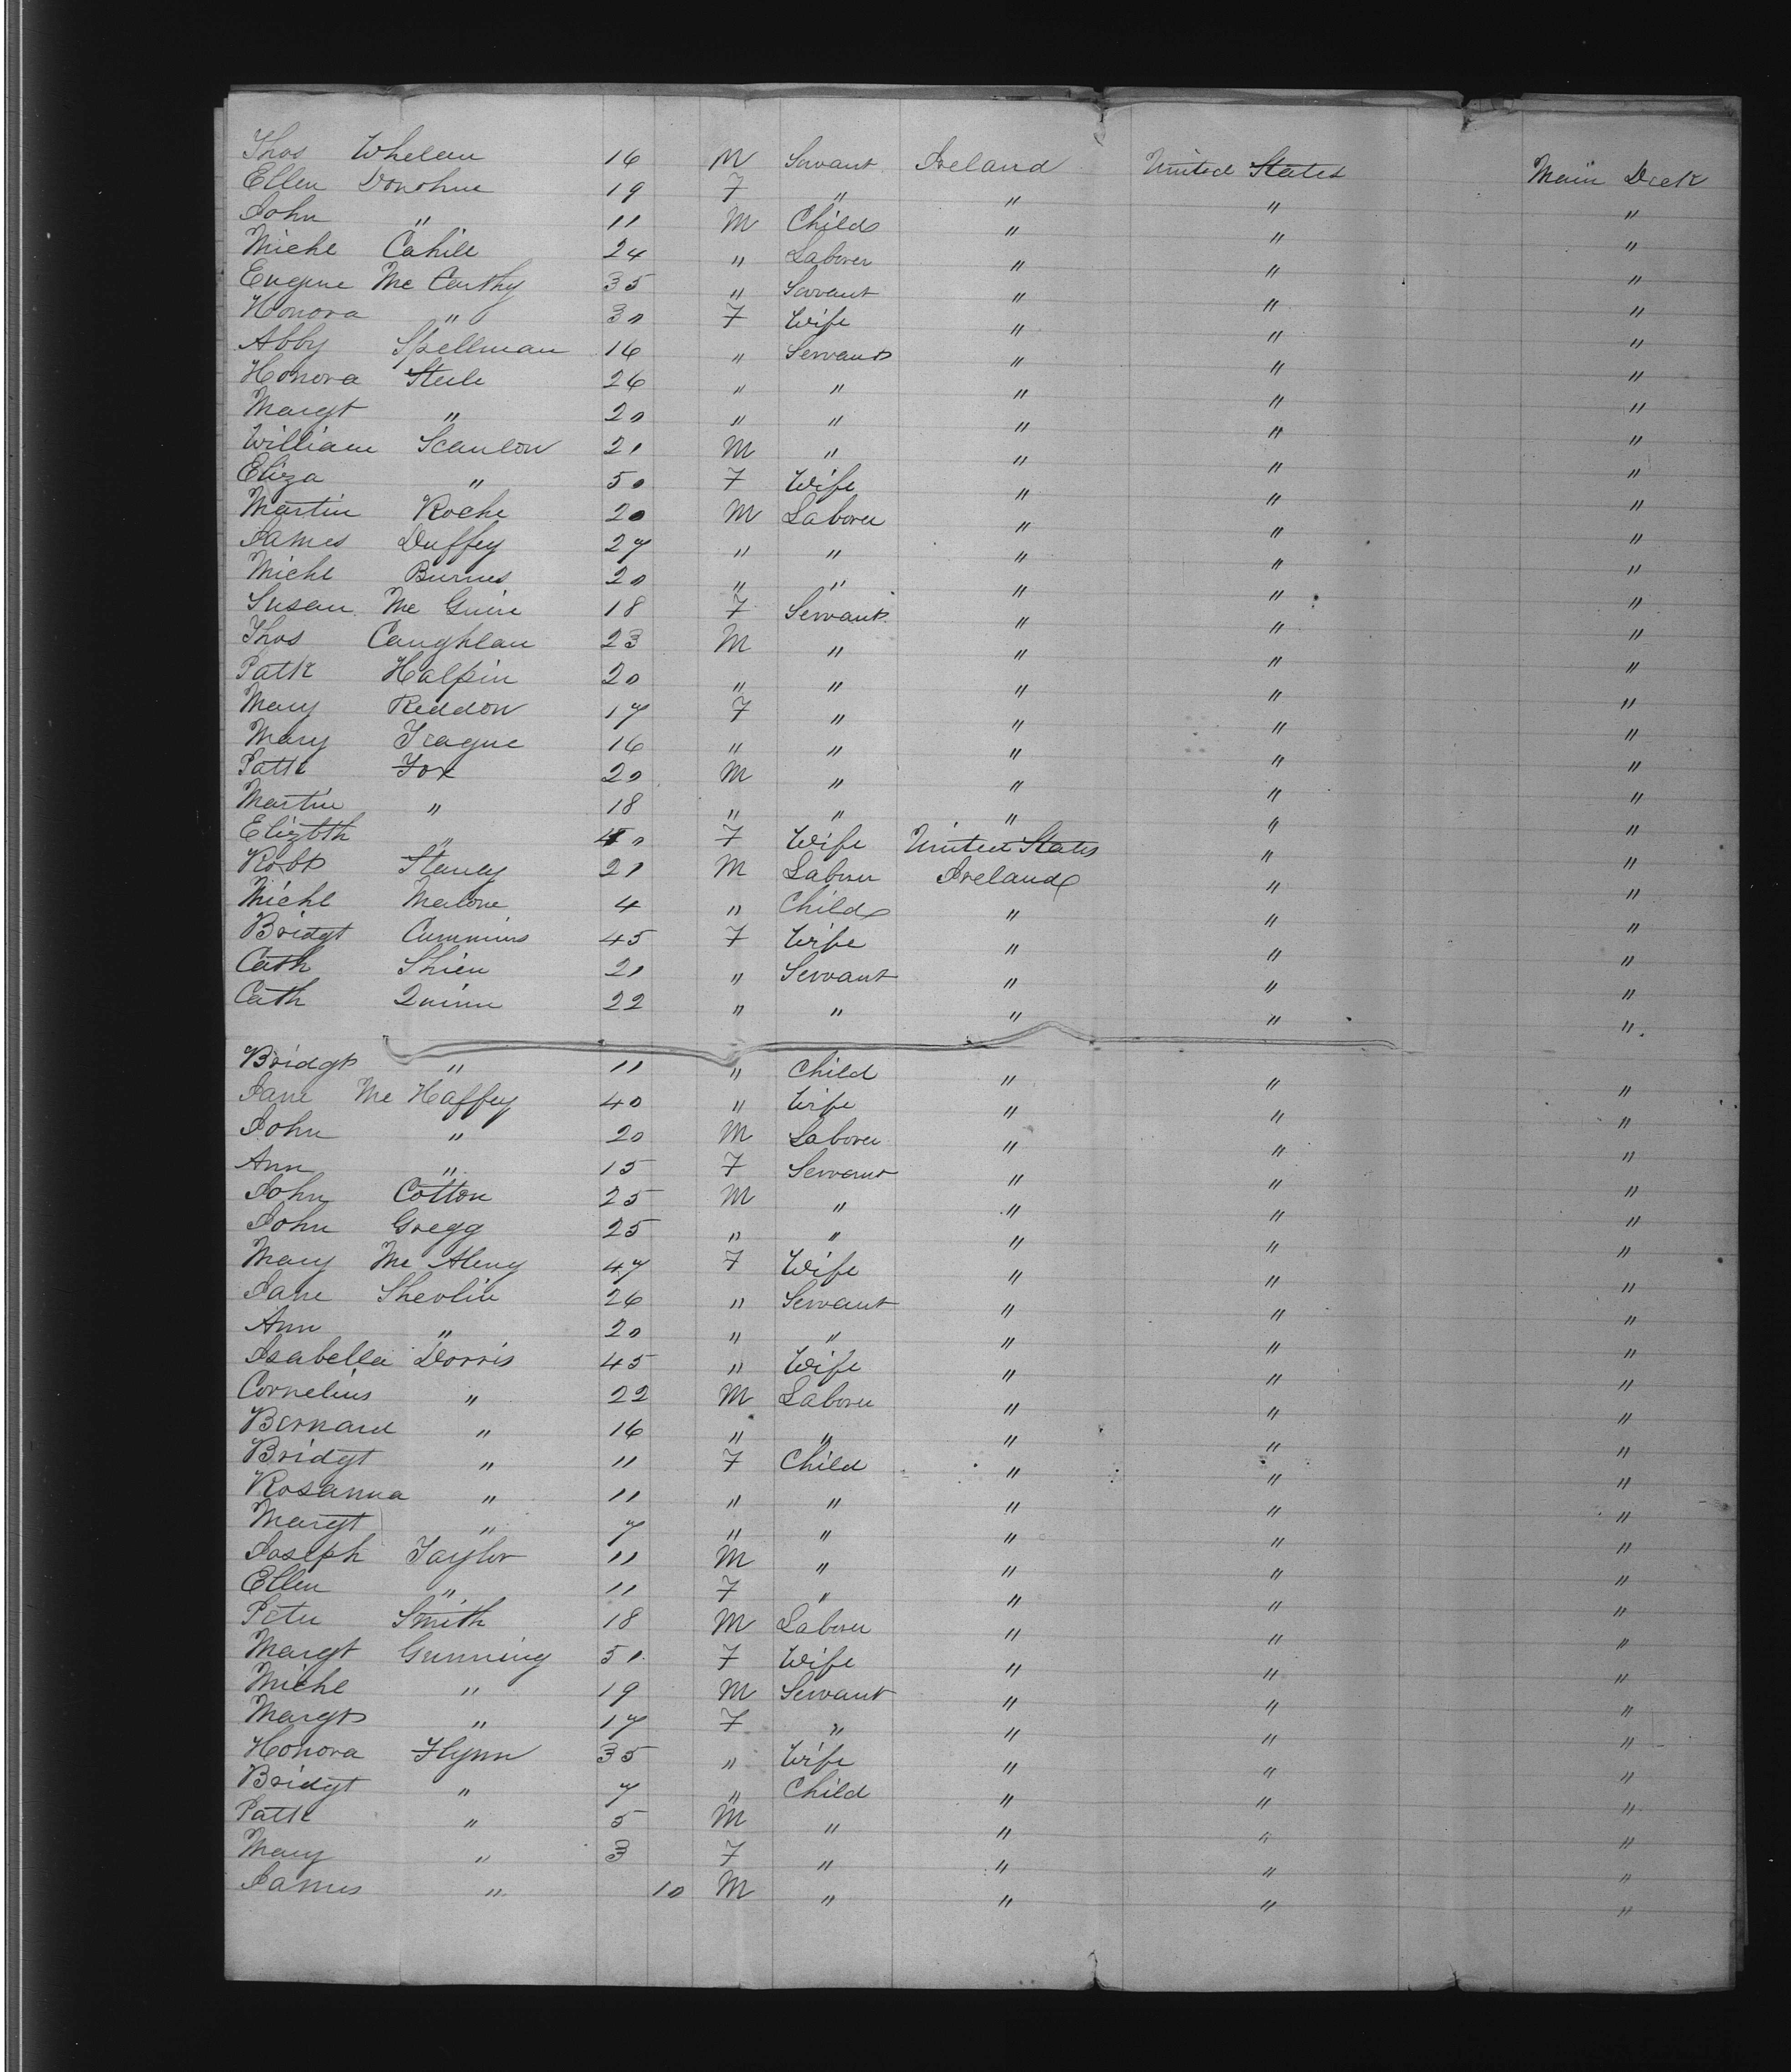 Thos Whelan 16 M Servant Ireland United States Main Deck
Ellen Donohue 19 F " " " "
John " 11 M Child " " "
Michl Cahill 24 " Laborer " " "
Eugene Mc Carthy 35 " Servant " " "
Honora " 30 F Wife " " "
Abby Spellman 16 " Servant " " "
Honora Steele 26 " " " " "
Margt " 20 " " " " "
William Scanlon 21 M " " " "
Eliza " 50 F Wife " " "
Martin Roche 20 M Laborer " " "
James Duffey 27 " " " " "
Michl Burnes 20 " " " " "
Susan Mc Guire 18 F Servant " " "
Thos Caughlan 23 M " " " "
Patk Halpin 20 " " " " "
Mary Reddon 17 F " " " "
Mary Teague 16 " " " " "
Patk Fox 20 M " " " "
Martin " 18 " " " " "
Elizbth " 40 F Wife United States " "
Robt Stanley 21 M Laborer Ireland " "
Michl Malone 4 " Child " " "
Bridgt Cummins 45 F Wife " " "
Cath Shien 21 " Servant " " "
Cath Quinn 22 " " " " "
Bridgt " 11 " Child " " "
Jane Mc Haffey 40 " Wife " " "
John " 20 M Laborer " " "
Ann " 15 F Servant " " "
John Cotton 25 M " " " "
John Gregg 25 " " " " "
Mary Mc Aleny 47 F Wife " " "
Jane Shevlin 26 " Servant " " "
Ann " 20 " " " " "
Isabella Dorris 45 " Wife " " "
Cornelius " 22 M Laborer " " "
Bernard " 16 " " " " "
Bridgt " 11 F Child " " "
Rosanna " 11 " " " " "
Margt " 7 " " " " "
Joseph Taylor 11 M " " " "
Ellen " 11 F " " " "
Peter Smith 18 M Laborer " " "
Margt Gunning 51 F Wife " " "
Michl " 19 M Servant " " "
Margt " 17 F " " " "
Honora Flynn 35 " Wife " " "
Bridgt " 7 " Child " " "
Patk " 5 M " " " "
Mary " 3 F " " " "
James " 10 M " " " "